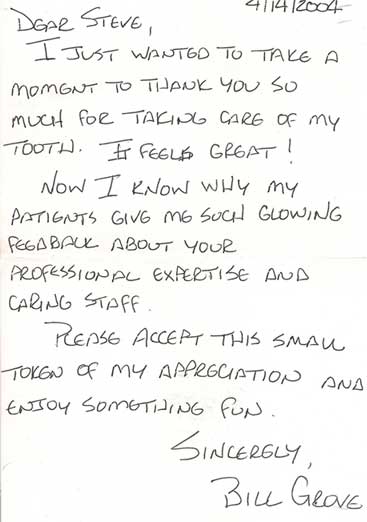 4/14/2004
DEAR STEVE,
I JUST WANTED TO TAKE A
MOMENT TO THANK YOU SO
MUCH FOR TAKING CARE OF MY
TOOTH. It FEELS GREAT!
NOW I KNOW WHY MY
PATIENTS GIVE ME SUCH GLOWING
FEEDBACK ABOUT YOUR
PROFESSIONAL EXPERTISE AND
CARING STAFF.
PLEASE ACCEPT THIS SMALL
TOKEN OF MY APPRECIATION AND
ENJOY SOMETHING FUN.
SINCERELY,
BILL GROVE